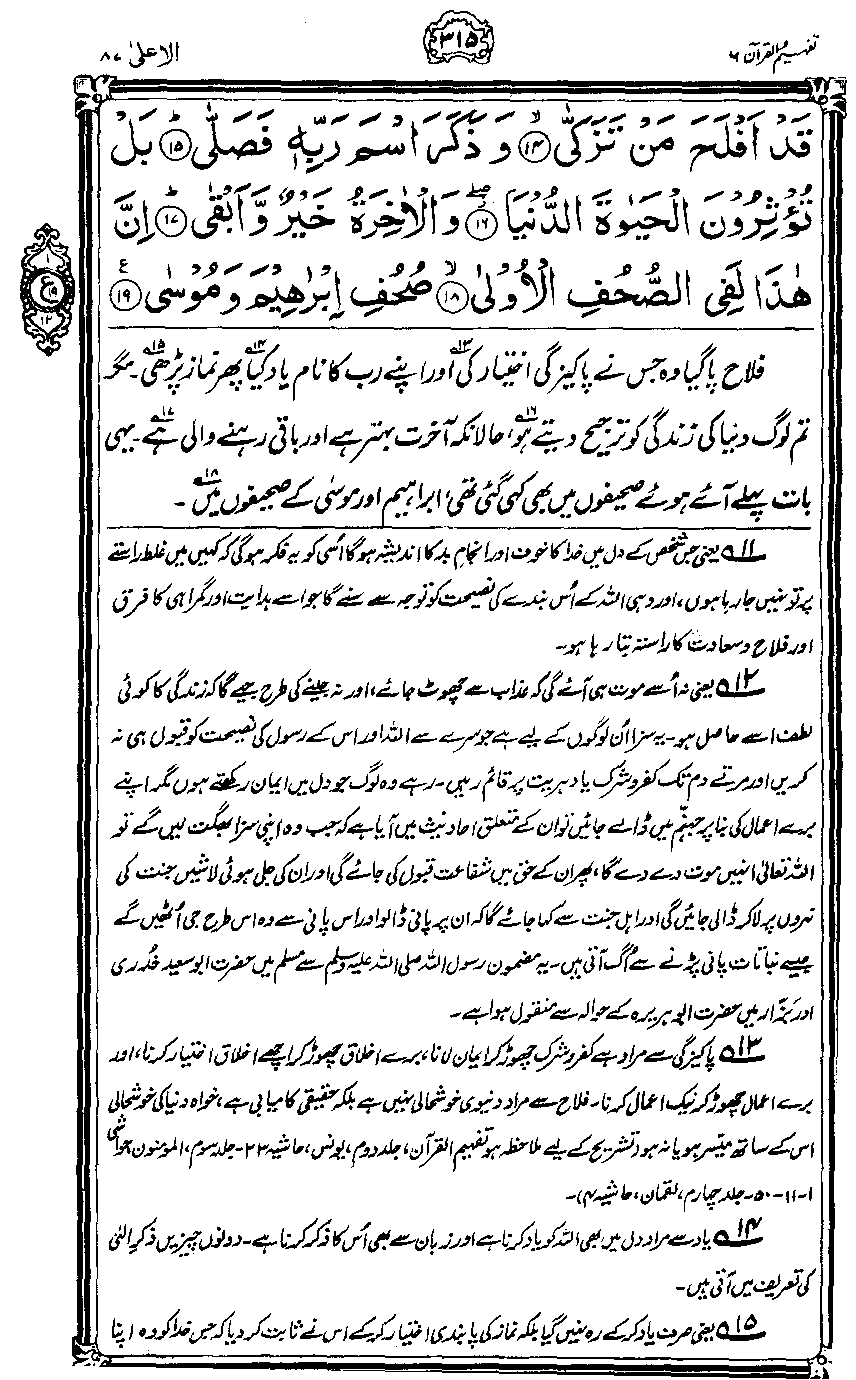 تفہیم القرآن ۶
۳۱۵
الاعلیٰ ۸۷
قَدْ اَفْلَحَ مَنْ تَزَكّٰى ﴿۱۴﴾ وَ ذَكَرَ اسْمَ رَبِّهٖ فَصَلّٰى ﴿۱۵﴾ بَلْ
تُؤْثِرُوْنَ الْحَيٰوةَ الدُّنْيَا ﴿۱۶﴾ وَالْاٰخِرَةُ خَيْرٌ وَّاَبْقٰى ﴿۱۷﴾ اِنَّ
هٰذَا لَفِى الصُّحُفِ الْاُوْلٰى ﴿۱۸﴾ صُحُفِ اِبْرٰهِيْمَ وَمُوْسٰى ﴿۱۹﴾
فلاح پاگیا وہ جس نے پاکیزگی اختیار کی۱۳ اور اپنے رب کا نام یاد کیا۱۴ پھر نماز پڑھی۱۵۔ مگر
تم لوگ دنیا کی زندگی کو ترجیح دیتے ہو۱۶، حالانکہ آخرت بہتر ہے اور باقی رہنے والی ہے۱۷۔ یہی
بات پہلے آئے ہوئے صحیفوں میں بھی کہی گئی تھی، ابراہیم اور موسیٰ کے صحیفوں میں۱۸۔
۱۱ یعنی جس شخص کے دل میں خدا کا خوف اور انجامِ بد کا اندیشہ ہوگا اُسی کو یہ فکر ہوگی کہ کہیں میں غلط راستے
پر تو نہیں جا رہا ہوں، اور وہی اللہ کے اُس بندے کی نصیحت کو توجہ سے سنے گا جو اسے ہدایت اور گمراہی کا فرق
اور فلاح و سعادت کا راستہ بتا رہا ہو۔
۱۲ یعنی نہ اُسے موت ہی آئے گی کہ عذاب سے چھوٹ جائے، اور نہ جینے کی طرح جیے گا کہ زندگی کا کوئی
لطف اسے حاصل ہو۔ یہ سزا اُن لوگوں کے لیے ہے جو سرے سے اللہ اور اس کے رسول کی نصیحت کو قبول ہی نہ
کریں اور مرتے دم تک کفر و شرک یا دہریت پر قائم رہیں۔ رہے وہ لوگ جو دل میں ایمان رکھتے ہوں مگر اپنے
برے اعمال کی بنا پر جہنّم میں ڈالے جائیں تو ان کے متعلق احادیث میں آیا ہے کہ جب وہ اپنی سزا بھگت لیں گے تو
اللہ تعالیٰ انہیں موت دے دے گا، پھر ان کے حق میں شفاعت قبول کی جائے گی اور ان کی جلی ہوئی لاشیں جنت کی
نہروں پر لا کر ڈالی جائیں گی اور اہلِ جنت سے کہا جائے گا کہ ان پر پانی ڈالو اور اس پانی سے وہ اس طرح جی اُٹھیں گے
جیسے نباتات پانی پڑنے سے اُگ آتی ہیں۔ یہ مضمون رسول اللہ صلی اللہ علیہ وسلم سے مسلم میں حضرت ابو سعید خُدری
اور بَزّار میں حضرت ابو ہریرہ کے حوالہ سے منقول ہوا ہے۔
۱۳ پاکیزگی سے مراد ہے کفر و شرک چھوڑ کر ایمان لانا، برے اخلاق چھوڑ کر اچھے اخلاق اختیار کرنا، اور
برے اعمال چھوڑ کر نیک اعمال کرنا۔ فلاح سے مراد دنیوی خوشحالی نہیں ہے بلکہ حقیقی کامیابی ہے، خواہ دنیا کی خوشحالی
اس کے ساتھ میسر ہو یا نہ ہو (تشریح کے لیے ملاحظہ ہو تفہیم القرآن، جلد دوم، یونس، حاشیہ ۲۳۔ جلد سوم، المؤمنون حواشی
۱-۱۱-۵۰۔ جلد چہارم، لقمان، حاشیہ ۴)۔
۱۴ یاد سے مراد دل میں بھی اللہ کو یاد کرنا ہے اور زبان سے بھی اُس کا ذکر کرنا ہے۔ دونوں چیزیں ذکرِ الٰہی
کی تعریف میں آتی ہیں۔
۱۵ یعنی صرف یاد کر کے رہ نہیں گیا بلکہ نماز کی پابندی اختیار کر کے اس نے ثابت کر دیا کہ جس خدا کو وہ اپنا